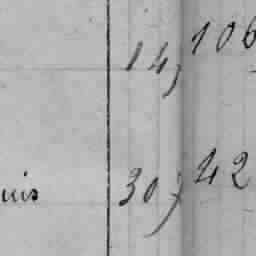 14, 106
uis 30, 42